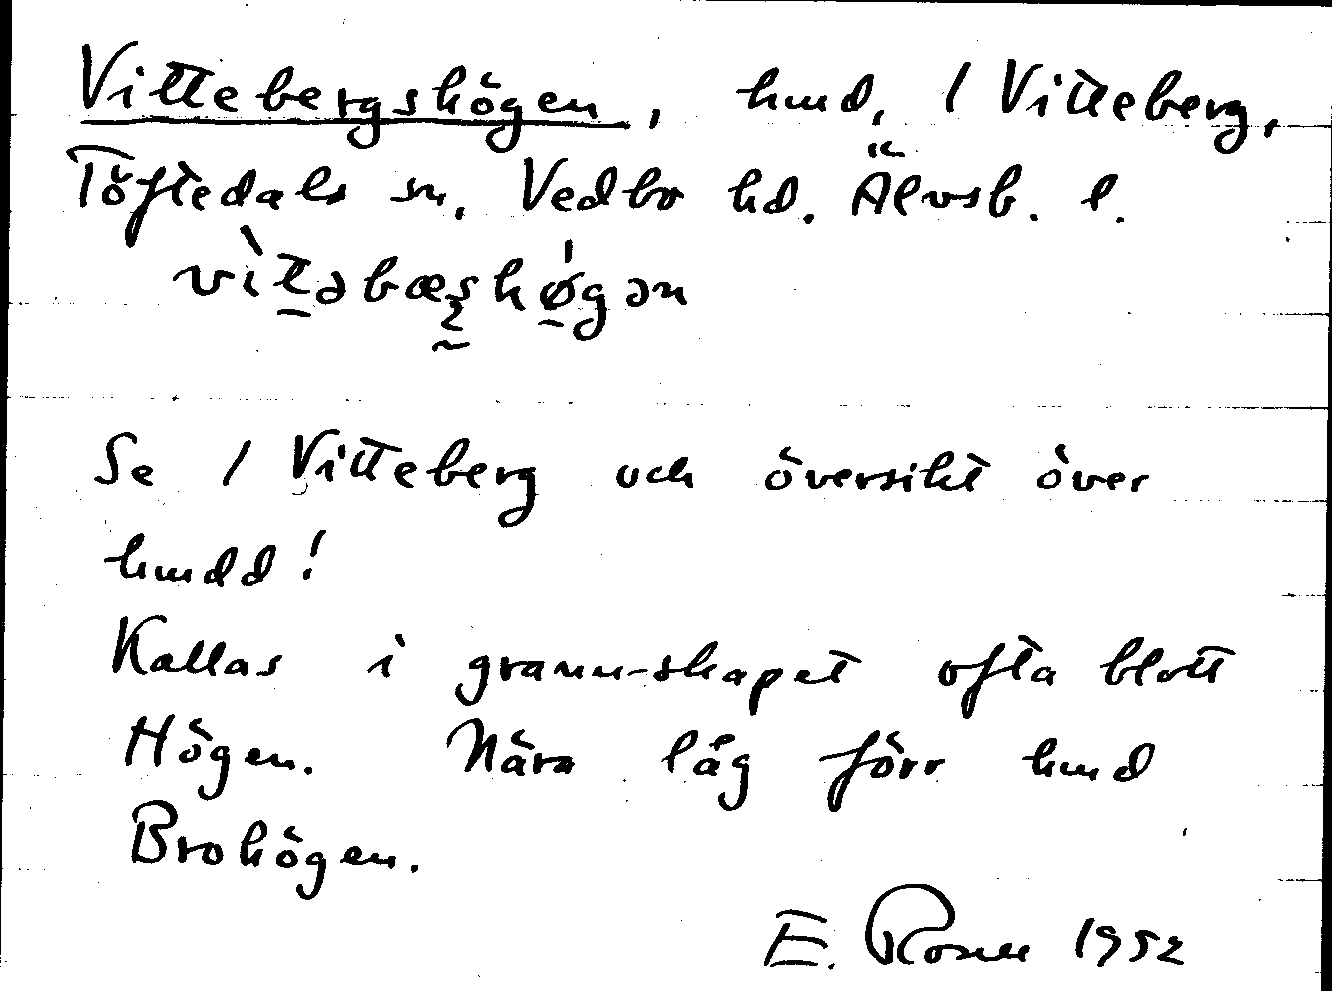 Vittebergshögen, hmd, 1 Vitteberg,
Töftedals sn, Vedbo hd. Älvsb. l.
vìtəbæʂhø̍gən
Se 1 Vitteberg och översikt över
hmdd!
Kallas i grann-skapet ofta blott
Högen. Nära låg förr hmd
Brohögen.
E. Rosell 1952